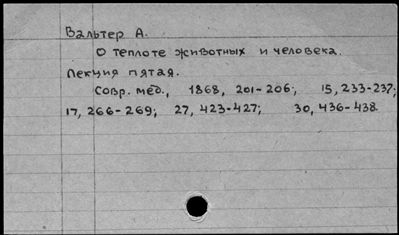 Вальтер А.
О теплоте животных и человека.
Лекция пятая.
Совр. мед., 1868, 201-206; 15, 233-237;
17, 266-269; 27, 423-427; 30, 436-438